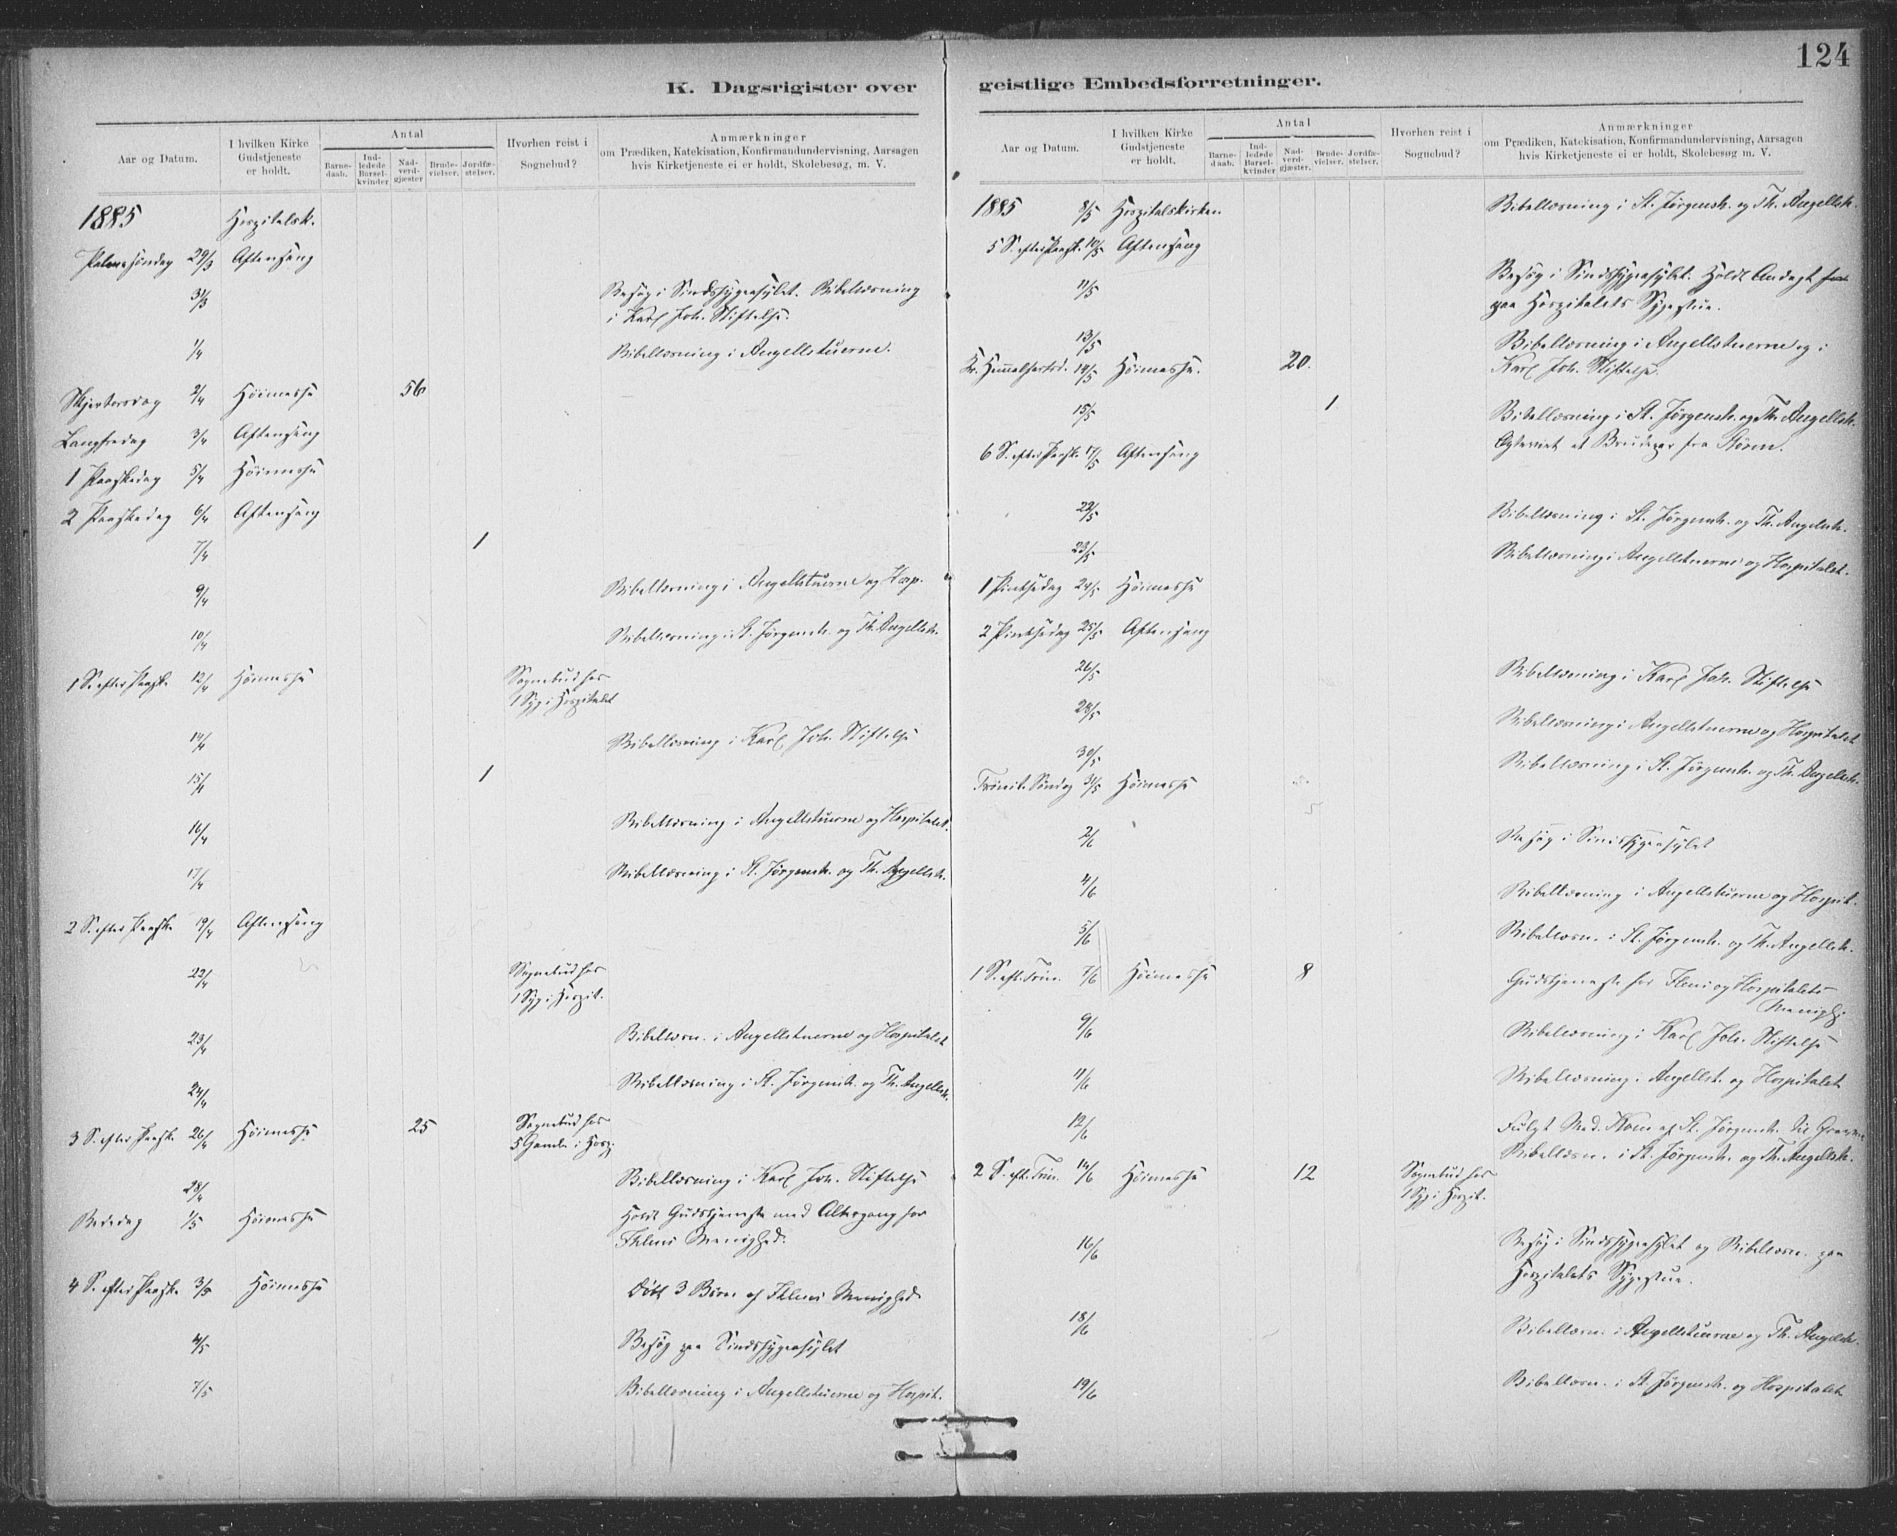 124
K. Dagsrigister over
Aar og Datum.
I hvilken Kirke Gudstjeneste er holdt.
Antal
Barne-daab.
Ind-ledede Barsel-kvinder
Nad-verd-gjæster
Brude-vielser.
Jordfæ-stelser.
Hvorhen reist i Sognebud?
Anmærkninger
om Prædiken, Katekisation, Konfirmandundervisning, Aarsagen
hvis Kirketjeneste ei er holdt, Skolebesøg, m. V.
1885 Hospitalsk.
Palmesøndag 29/3 Aftensang
31/3 Besøg i Sindssygeasylet. Bibellæsning
i Karl Joh. Stiftelse.
1/4 Bibellæsning i Angellstuerne.
Skjertorsdag 2/4 Høimesse 56
Langfredag 3/4 Aftensang
1 Paaskedag 5/4 Høimesse
2 Paaskedag 6/4 Aftensang
7/4 1
9/4 Bibellæsning i Angellstuerne og Hosp.
10/4 Bibellæsning i St. Jørgensh. og Th. Angellsh.
1 S. efter Paaske 12/4 Høimesse Sognebud hos
1 Syg i Hospitalet
14/4 Bibellæsning i Karl Joh. Stiftelse
15/4 1
16/4 Bibellæsning i Angellstuerne og Hospitalet.
17/4 Bibellæsning i St. Jørgensh. og Th. Angellsh.
2 S. efter Paaske 19/4 Aftensang
22/4 Sognebud hos
1 Syg i Hospit.
23/4 Bibellæsn. i Angellstuerne og Hospitalet
24/4 Bibellæsning i St. Jørgensh. og Th. Angellsh.
3 S. efter Paaske 26/4 Høimesse 25 Sognebud hos
5 Gamle i Hosp.
28/4 Bibellæsning i Karl Joh. Stiftelse
Bededag 1/5 Høimesse Holdt Gudstjeneste med Altergang for
Ihlens Menighed.
4 S. efter Paaske 3/5 Høimesse Døbt 3 Børn af Ihlens Menighed
4/5 Besøg paa Sindssygeasylet
7/5 Bibellæsning i Angellstuerne og Hospit.
geistlige Embedsforretninger.
Aar og Datum.
I hvilken Kirke Gudstjeneste er holdt.
Antal
Barne-daab.
Ind-ledede Barsel-kvinder
Nad-verd-gjæster.
Brude-vielser.
Jordfæ-stelser.
Hvorhen reist i Sognebud?
Anmærkninger
om Prædiken, Katekisation, Konfirmandundervisning, Aarsagen
hvis Kirketjeneste ei er holdt, Skolebesøg, m. V.
1885 8/5 Hospitalskirken Bibellæsning i St. Jørgensh. og Th. Angellsh.
5 S. efter Paaske 10/5 Aftensang
11/5 Besøg i Sindssygeasylet. Holdt Andagt
paa Hospitalets Sygestue.
13/5 Bibellæsning i Angellstuerne og i
Karl Joh. Stiftelse.
Kr. Himmelfartsd. 14/5 Høimesse. 20.
15/5 1 Bibellæsning i St. Jørgensh. og Th. Angellsh.
Ægteviet et Brudepar fra Støren.
6 S. efter Paaske 17/5 Aftensang
22/5 Bibellæsning i St. Jørgensh. og Th. Angellsh.
23/5 Bibellæsning i Angellstuerne og Hospitalet.
1 Pintsedag 24/5 Høimesse
2 Pintsedag 25/5 Aftensang
26/5 Bibellæsning i Karl Joh. Stiftelse
28/5 Bibellæsning i Angellstuerne og Hospitalet
30/5 Bibellæsning i St. Jørgensh. og Th. Angellsh.
Trinit. Søndag 31/5 Høimesse
2/6 Besøg i Sindssygeasylet
4/6 Bibellæsning i Angellstuerne og Hospit.
5/6 Bibellæsn. i St. Jørgensh. og Th. Angellsh.
1 S. eft. Trin. 7/6 Høimesse 8 Gudstjeneste for Ihlens og Hospitalets
Menigh.
9/6 Bibellæsning i Karl Joh. Stiftelse
11/6 Bibellæsning i Angellst. og Hospitalet
12/6 Fulgt Mad. af St. Jørgensh. til Graven
Bibellæsn. i St. Jørgensh. og Th. Angellsh.
2 S. eft. Trin. 14/6 Høimesse 12 Sognebud hos
1 Syg i Hospit.
16/6 Besøg i Sindssygeasylet og Bibellæsn. paa
Hospitalets Sygestue.
18/6 Bibellæsn. i Angellstuerne og Th. Angellsh.
19/6 Bibellæsn. i St. Jørgensh. og Hospitalet